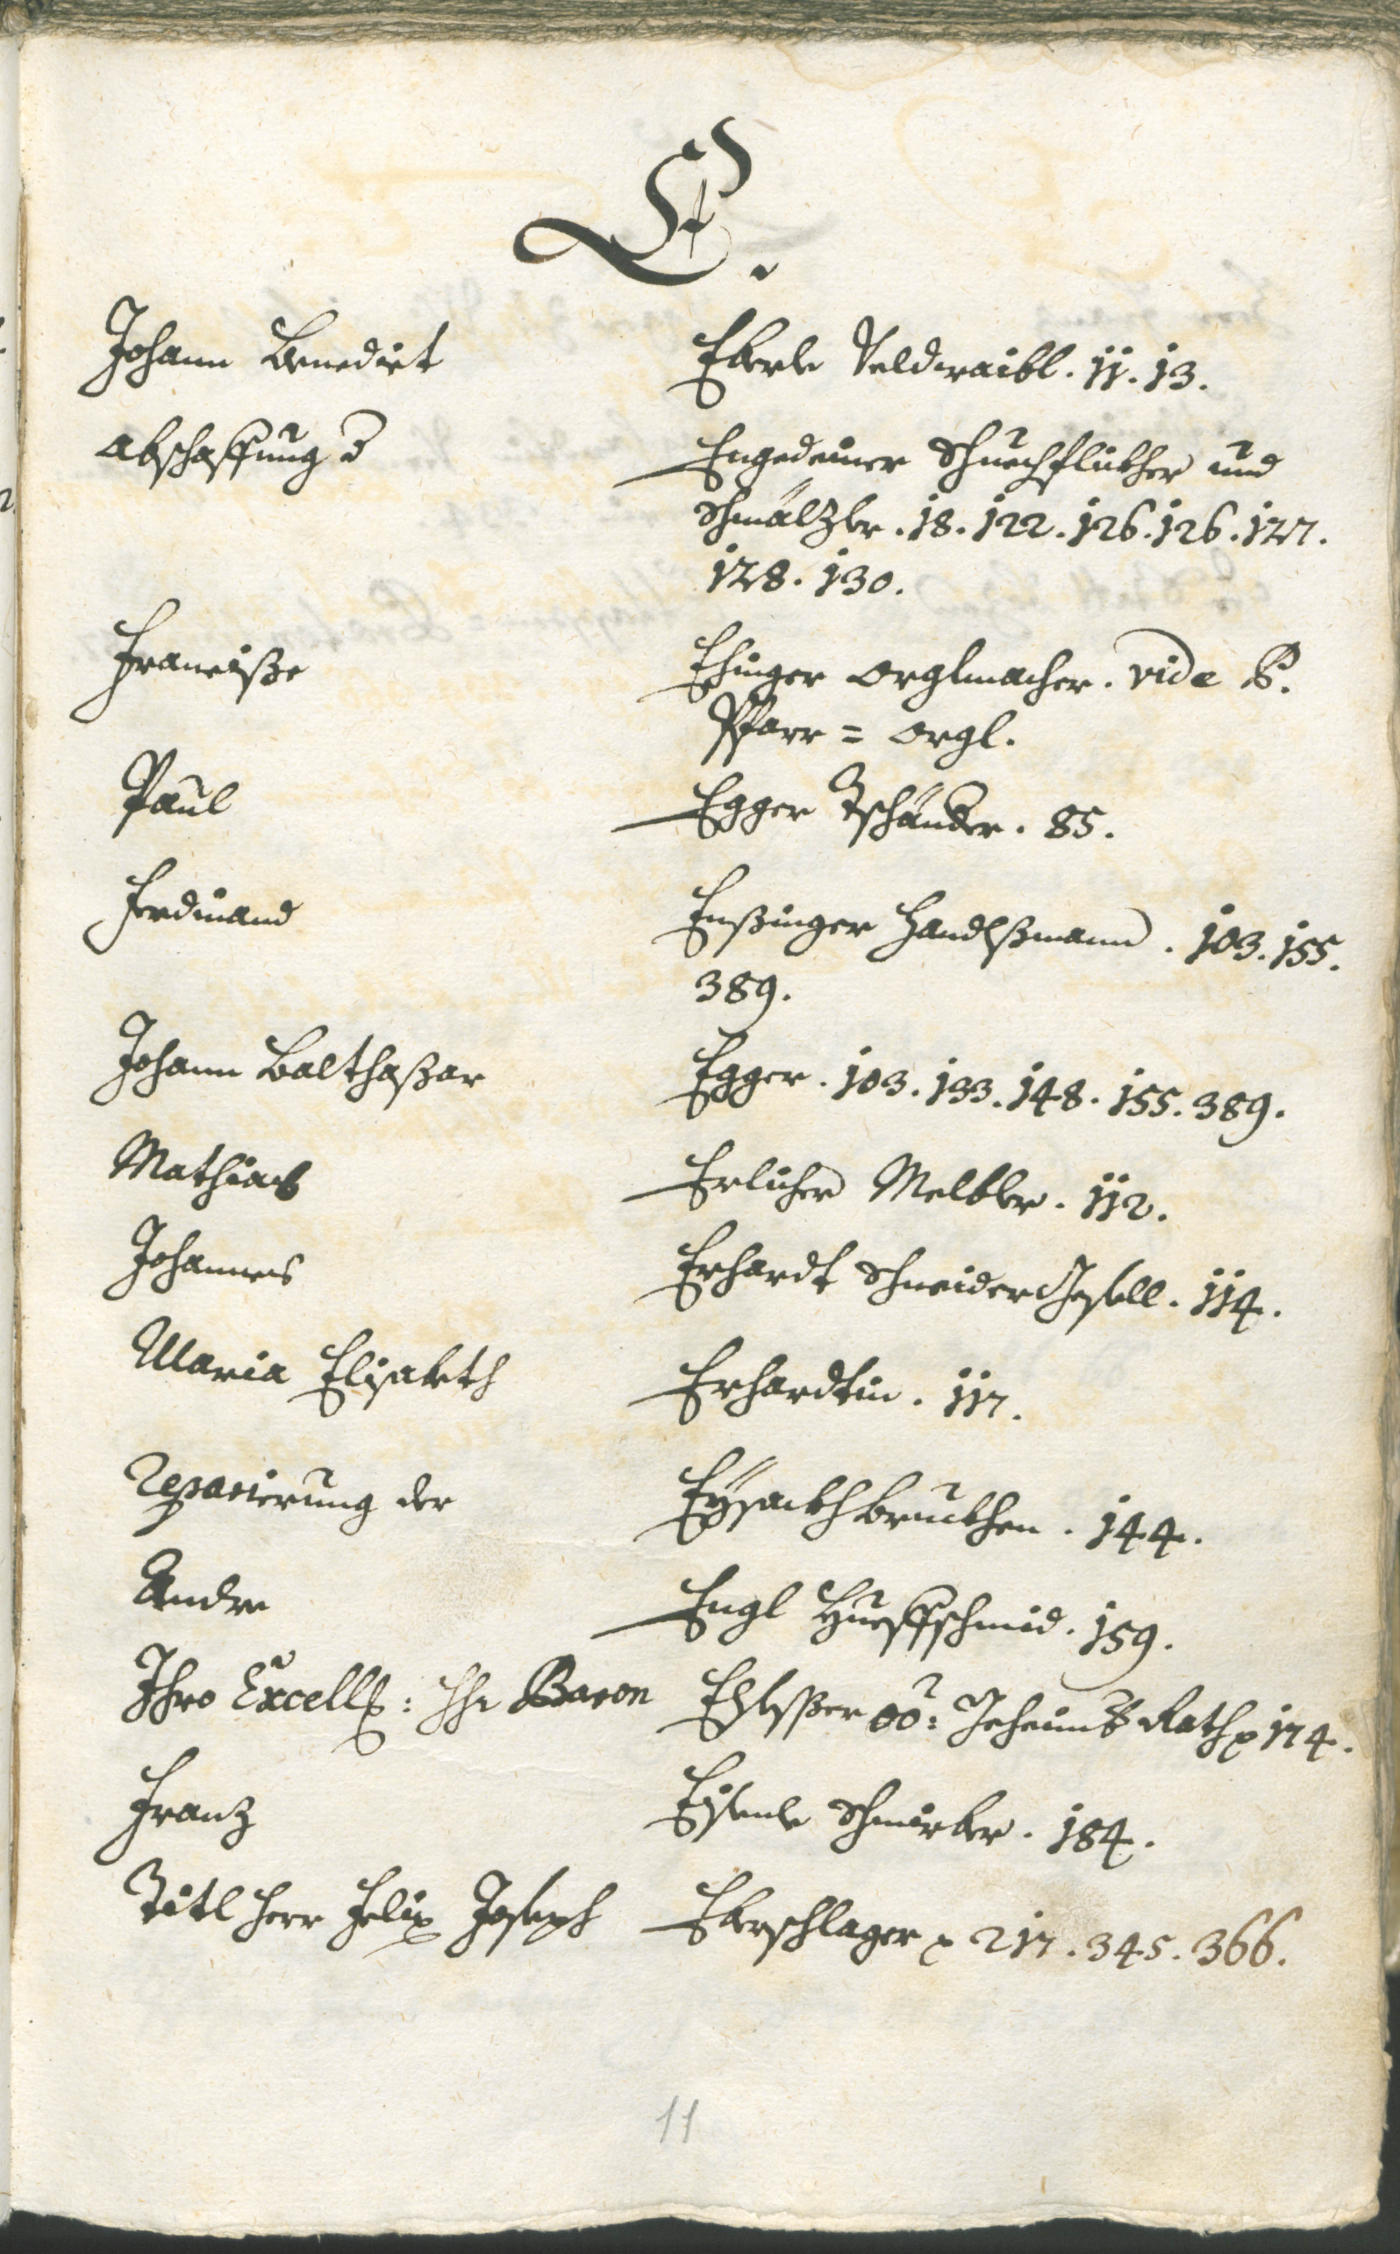 E.
Johann Benedict Eberle Veldwaibl. 11. 13.
Abschaffung d Engedeiner Schuechflickher und
Schmälzler. 18. 122. 126. 126. 127.
128. 130.
Francisze Ehinger Orglmacher. vide P.
Pfarr = Orgl.
Paul Egger Tschander. 85.
Ferdinand Enßinger Handlßmann. 103. 155.
389.
Johann Balthaßar Egger. 103. 133. 148. 155. 389.
Mathias Erlicher Melbler. 112.
Johannes Erhardt Schneider Gesell. 114.
Maria Elisabeth Erhardtin. 117.
Reparierung der Eysackhbruckhen. 144.
Andre Engl Hueffschmid. 159.
Ihro Excell: Hr Baron OÖ: Geheimb Rath 174.
Franz Eisenle Schnirler. 184.
Titl Herr Felix Joseph Eberschlager 217. 345. 366.
11